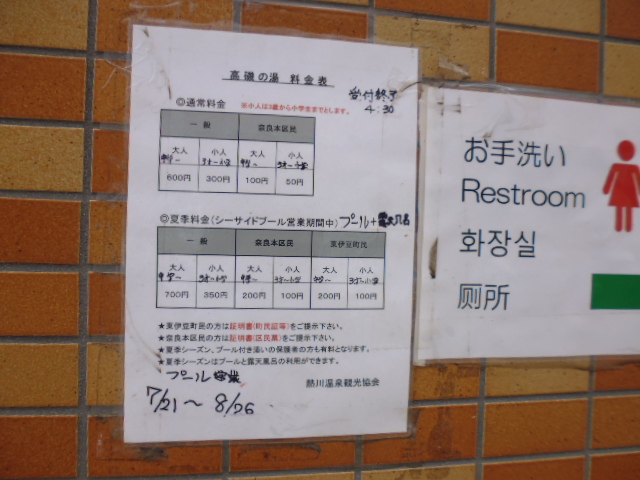 高磯の湯 料金表
受付終了
4:30
◎通常料金 ※小人は3歳から小学生までとします。
一般 奈良本区民
大人 小人 大人 小人
600円 300円 100円 50円
◎夏季料金(シーサイドプール営業期間中) プール+露天風呂
一般 奈良本区民 東伊豆町民
大人 小人 大人 小人 大人 小人
700円 350円 200円 100円 200円 100円
★東伊豆町民の方は証明書(町民証等)をご提示下さい。
★奈良本区民の方は証明書(区民票)をご提示下さい。
★夏季シーズン、プール付き添いの保護者の方も有料となります。
★夏季シーズンはプールと露天風呂の利用ができます。
プール営業
7/21~8/26
熱川温泉観光協会
お手洗い
Restroom
화장실
厕所